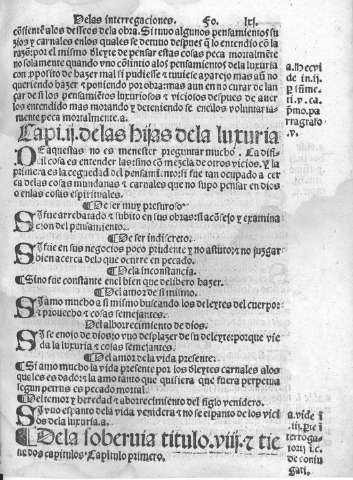 Delas interrogaciones. Fo. lxj.
cõsiente alos desseos dela obra. Si tuuo algunos pensamiẽtos su
zios y carnales enlos quales se detuuo despues q̃ lo entendio cõ la
razõ: por el mismo dleyte de pensar estas cosas peca mortalmẽte
no solamente quando vno cõsintio alos pensamiẽtos dela luxuria
con pposito de hazer mal si pudiesse t tuuiesse aparejo mas aũ no
queriendo hazer t poniendo por obra: mas aun en no curar de lan
çar de si los pensamiẽtos luxuriosos t viciosos despues de auer
los entendido mas morando y deteniendo se enellos voluntaria
mente peca mortalmente. a.
a. Hec vi
de in. ij.
p̱ sũme.
ti. v. ca.
p̃mo. pa
rragrafo
.v.
Capi. ij. delas hijas dela luxuria
DEaquestas no es menester preguntar mucho. Ca difi
cil cosa es entender las: sino cõ mezcla de otros vicios. y la
primera es la ceguedad del pensamiẽto: si fue tan ocupado a cer
ca delas cosas mundanas t carnales que no supo pensar en dios
o enlas cosas espirituales.
¶ De ser muy pressuroso.
SI fue arrebatado t subito en sus obras: sĩ acõsejo y examina
cion del pensamiento.
¶ De ser indiscreto.
SI fue en sus negocios poco prudente y no astuto: t no juzgar
bien acerca delo que ocurre en pecado.
¶ De la inconstancia.
¶ Si no fue constante enel bien que delibero hazer.
¶ Del amor de si mismo.
SI amo mucho a si mismo buscando los deleytes del cuerpo:
t prouecho t cosas semejantes.
Del aborrecimiento de dios.
SI se enojo de dios: o vuo desplazer de su deleyte: porque vie
da la luxuria t cosas semejantes.
¶ Del amor de la vida presente.
¶ Si amo mucho la vida presente por los dleytes carnales alos
quales es dado: t la amo tanto que quisiera que fuera perpetua
segun penso es pecado mortal.
¶ Del temor y heredad t aborrecimiento del siglo venidero.
SI vuo espanto dela vida venidera t no se espanto de los vici
os dela luxuria. a.
a. vide i
.iij. p̱te i
terroga
torij. i. c.
de coniu
gati.
¶ Dela soberuia titulo. viij. t tie
ne dos capitulos. Capitulo primero.